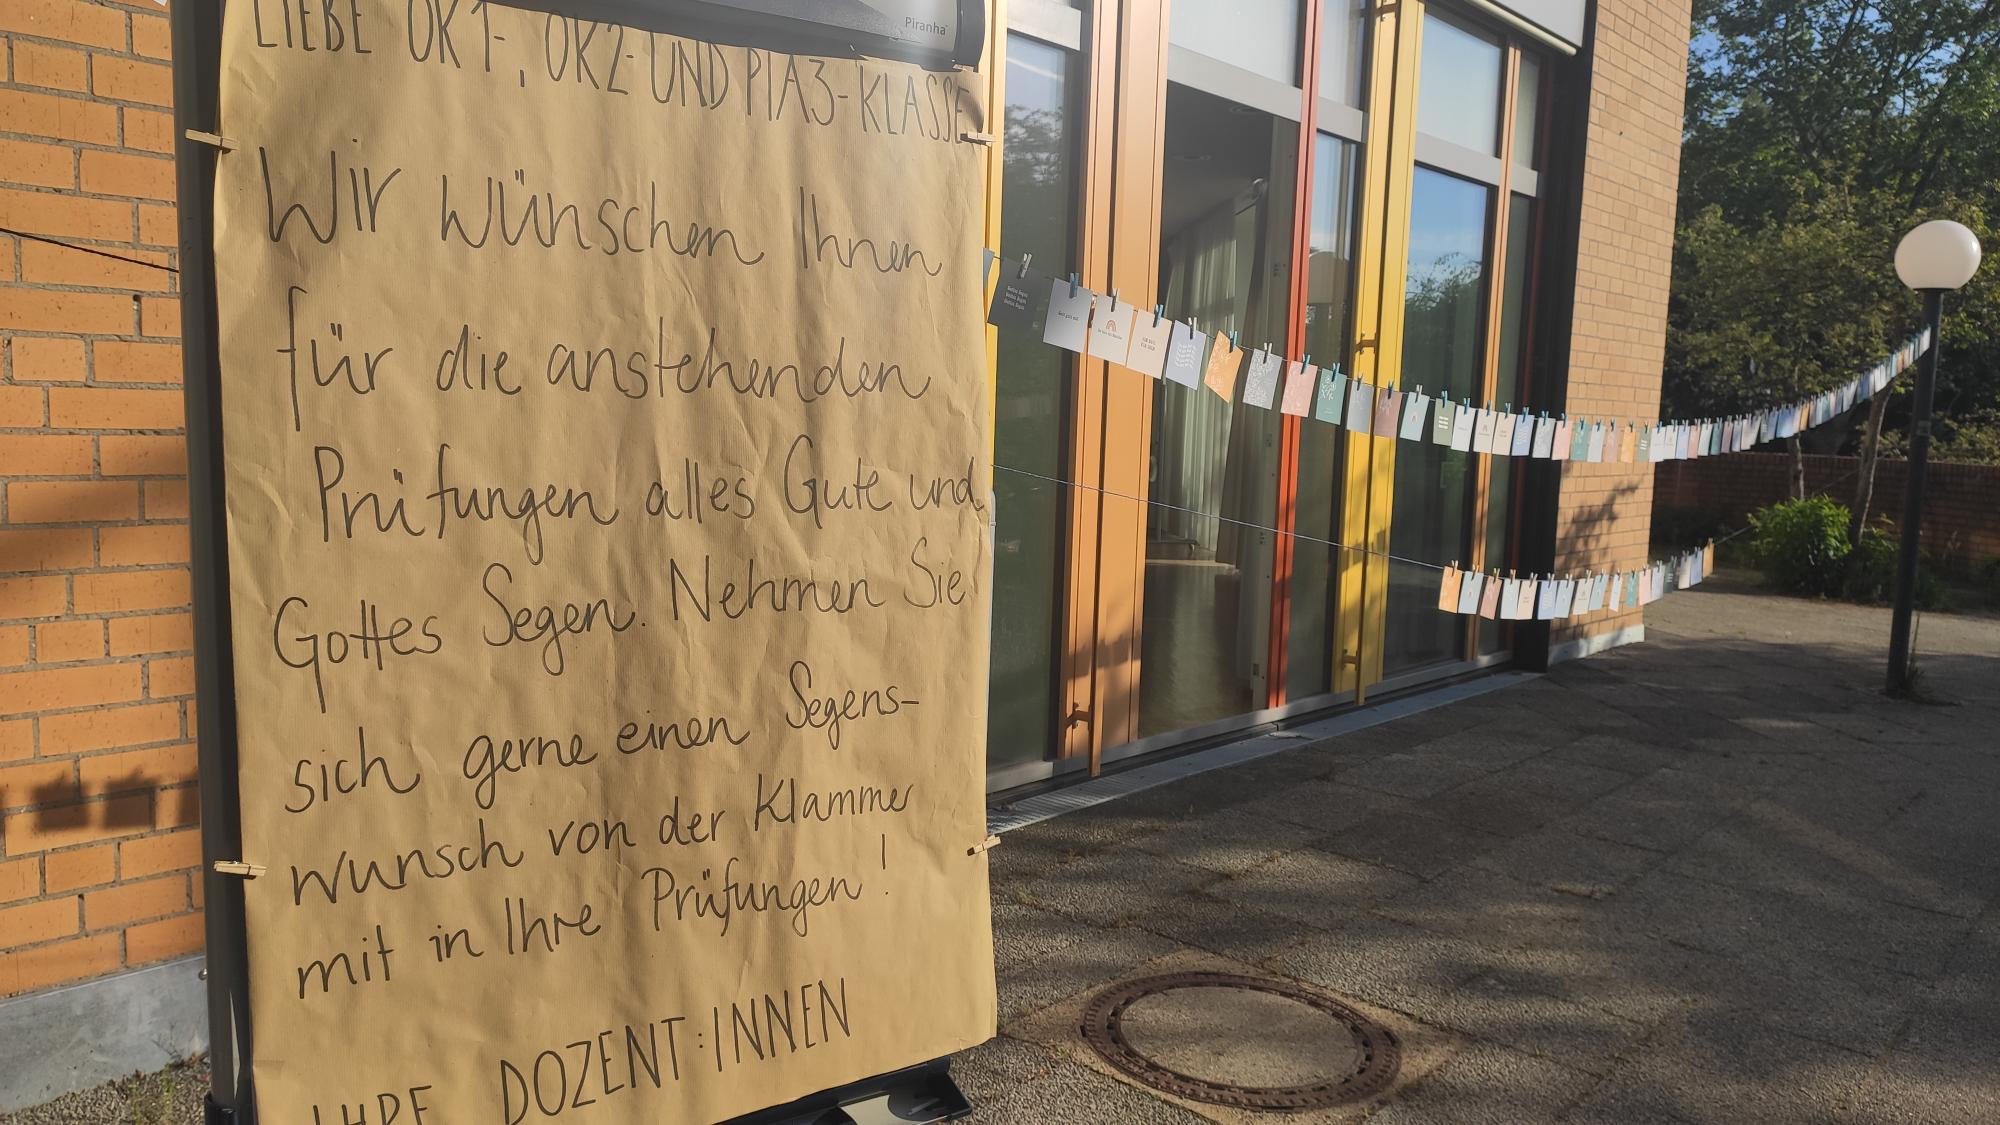 Piranha
LIEBE OK1-, OK2- UND PIA3-KLASSE
Wir wünschen Ihnen
für die anstehenden
Prüfungen alles Gute und
Gottes Segen. Nehmen Sie
sich gerne einen Segens-
wunsch von der Klammer
mit in Ihre Prüfungen!
IHRE DOZENT:INNEN